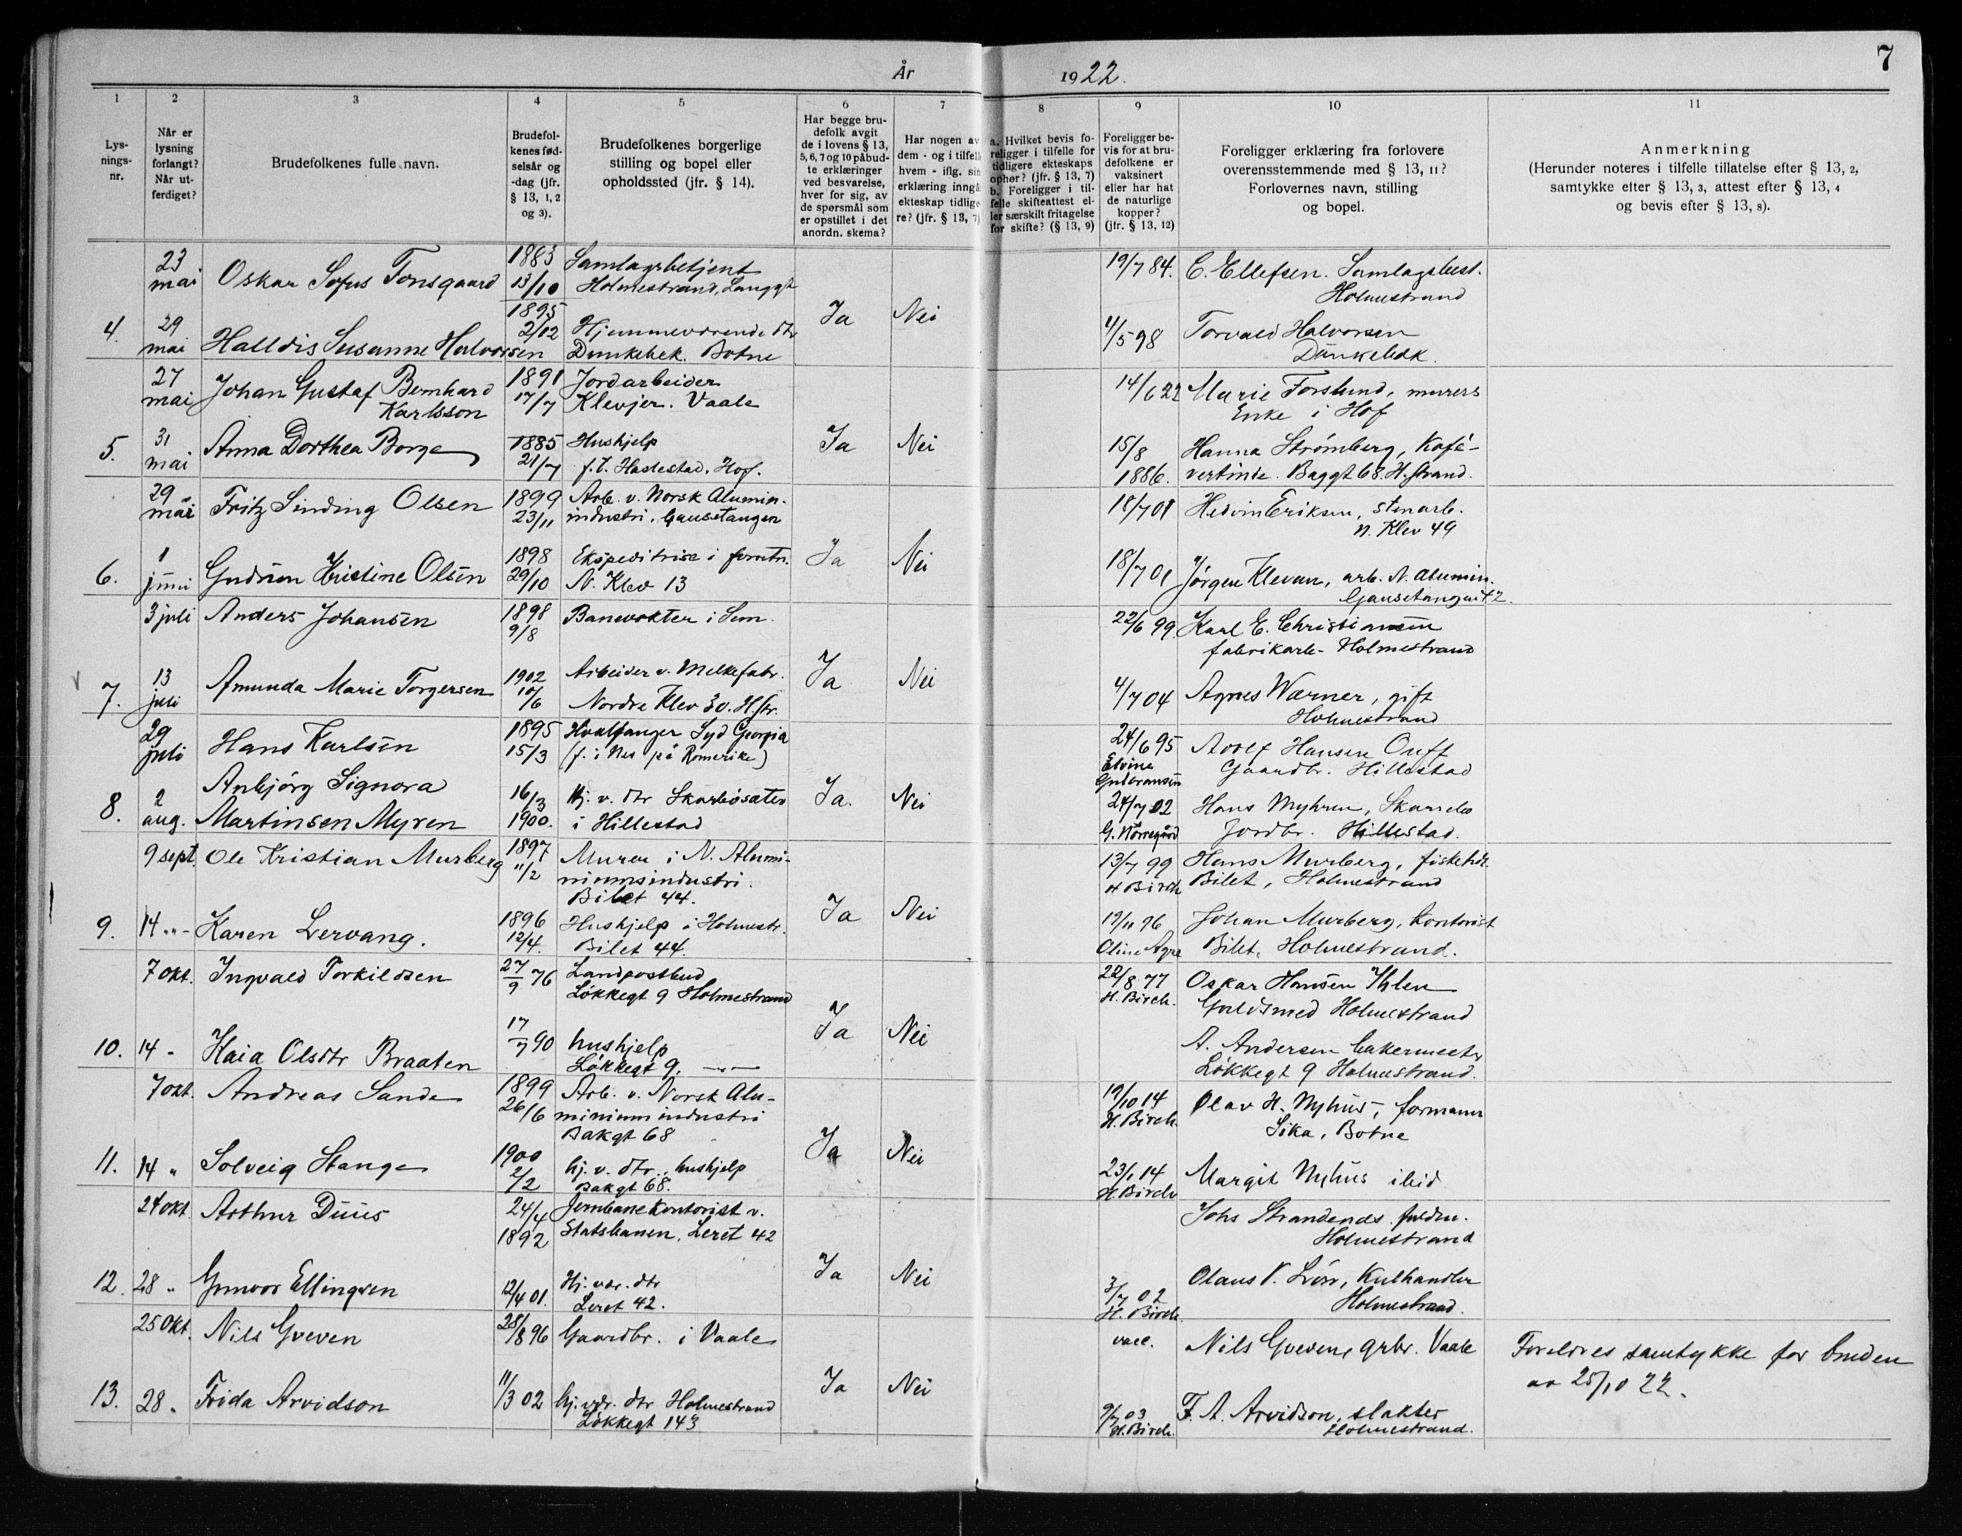 År 1922.
7
1 2 3 4 5 6 7 8 9 10 11
Lys-
nings-
nr.
Når er
lysning
forlangt?
Når ut-
ferdiget?
Brudefolkenes fulle navn.
Brudefol-
kenes fød-
selsår og
-dag (jfr.
§ 13, 1, 2
og 3).
Brudefolkenes borgerlige
stilling og bopel eller
opholdssted (jfr. § 14).
Har begge bru-
defolk avgit
de i lovens § 13,
5, 6, 7 og 10 påbud-
te erklæringer
ved besvarelse,
hver for sig, av
de spørsmål som
er opstillet i det
anordn. skema?
Har nogen av
dem - og i tilfelle
hvem - iflg. sin
erklæring inngå
ekteskap tidlige-
re? (jfr. § 13, 7)
a. Hvilket bevis fo-
religger i tilfelle for
tidligere ekteskaps
ophør? (jfr. § 13, 7)
b. Foreligger i til-
felle skifteattest el-
ler særskilt fritagelse
for skifte? (§ 13, 9)
Foreligger be-
vis for at bru-
defolkene er
vaksinert
eller har hat
de naturlige
kopper?
(jfr. § 13, 12)
Foreligger erklæring fra forlovere
overensstemmende med § 13, 11?
Forlovernes navn, stilling
og bopel.
Anmerkning
(Herunder noteres i tilfelle tillatelse efter § 13, 2,
samtykke efter § 13, 3, attest efter § 13, 4
og bevis efter § 13, 8).
23 mai Oskar Sofus Tonsgaard 1883 13/10 Samlagsbetjent
Holmestrand, Langgt
19/7 84. C. Ellefsen. Samlagsbest.
Holmestrand
4. 29 mai Halldis Susanne Halvorsen 1895 2/12 Hjemmeværende dtr
Dunkebek. Botne
Ja Nei
4/5 98 Torvald Halvorsen
Dunkebæk.
27 mai Johan Gustaf Bernhard
Karlsson
1891 17/7 Jordarbeider
Klevjer. Vaale
14/6 22 Marie Forslund, murers
Enke i Hof
5. 31 mai Anna Dorthea Borge 1885 21/7 Hushjelp
f. t. Haslestad, Hof.
Ja Nei
15/8 1886. Hanna Strømberg, Kafé-
vertinde. Baggt 68 H.strand.
29 mai Fritz Sinding Olsen 1899 23/11 Arb. v. Norsk Alumin.
industri, Gausetangen
18/7 01 Hedvin Eriksen, stenarb.
N. Klev 49
6. 1 juni Gudrun Kristine Olsen 1898 29/10 Ekspeditrise i forretn.
N. Klev 13
Ja Nei
18/7 01 Jørgen Klevan, arb. N. Alumin.
Gausetangen 42.
3 juli Anders Johansen 1898 9/8 Banevokter i Sem.
22/6 99 Karl E. Christiansen
fabrikarb- Holmestrand
7. 13 juli Amunda Marie Torgersen 1902 10/6 Arbeider v. Melkefabr.
Nordre Klev 30. H.str.
Ja Nei
4/7 04 Agnes Wærner, gift
Holmestrand
29 juli Hans Karlsen 1895 15/3 Hvalfanger Syd Georgia
(f. i Nes på Romerike)
24/6 95
Elvine
Gulbransen
Adolf Hansen Ouff
Gaardbr. Hillestad
8. 2 aug. Anbjörg Signora
Martinsen Myren
16/3 1900. Hj. v. dtr Skarbøsæter
i Hillestad
Ja. Nei
24/7 02
G. Nørregård
Hans Myhren, Skarrebo
Jordbr. Hillestad.
9 sept. Ole Kristian Murberg 1897 11/2 Murer i N. Alumi-
niumsindustri.
Bilet 44.
13/7 99
H Birch
Hans Murberg, fiskehdl.
Bilet, Holmestrand
9. 14 -"- Karen Lervang. 1896 12/4. Hushjelp i Holmestr.
Bilet 44.
Ja Nei
19/11 96
Oline Agre
Johan Murberg, kontorist
Bilet, Holmestrand.
7 okt. Ingvald Torkildsen 27/9 76 Landpostbud
Løkkegt 9 Holmestrand
22/8 77
H. Birch.
Oskar Hansen Ihlen
Guldsmed Holmestrand
10. 14 - Kaia Olsdtr Braaten 17/7 90 hushjelp
Løkkegt 9. —"—
Ja Nei
A. Andersen bakermester
Løkkegt 9 Holmestrand.
7 okt. Andreas Sande 1899 26/6 Arb. v. Norsk Alu-
minium industri
Bakgt 68
19/10 14
H. Birch.
Olav H. Nyhus, formann
Sika, Botne
11. 14 " Solveig Stange 1900 2/2 hj. v. dtr., hushjelp
Bakgt 68.
Ja Nei
23/1 14
H. Birch
Margit Nyhus ibid
24 okt. Arthur Duus 24/4 1892 Jernbanekontorist v.
Statsbanen, Leret 42
Johs Strandends fuldm.
Holmestrand
12. 28 " Gunvor Ellingsen 12/4 01. Hj. vær. dtr
Leret 42.
Ja Nei
3/7 02
H. Birch.
Olaus V. Løvr, Kulhandler
Holmestrand.
25 Okt. Nils Gveven 28/8 96 Gaardbr. i Vaale
vacc. Nils Gveven, grbr. Vaale
Foreldres samtykke for bruden
av 25/10 22.
13. 28 " Frida Arvidson 11/3 02 hj. vdr. dtr Holmestrand
Løkkegt 143
Ja Nei
9/7 03
H. Birch.
F. A. Arvidson, slakter
Holmestrand.